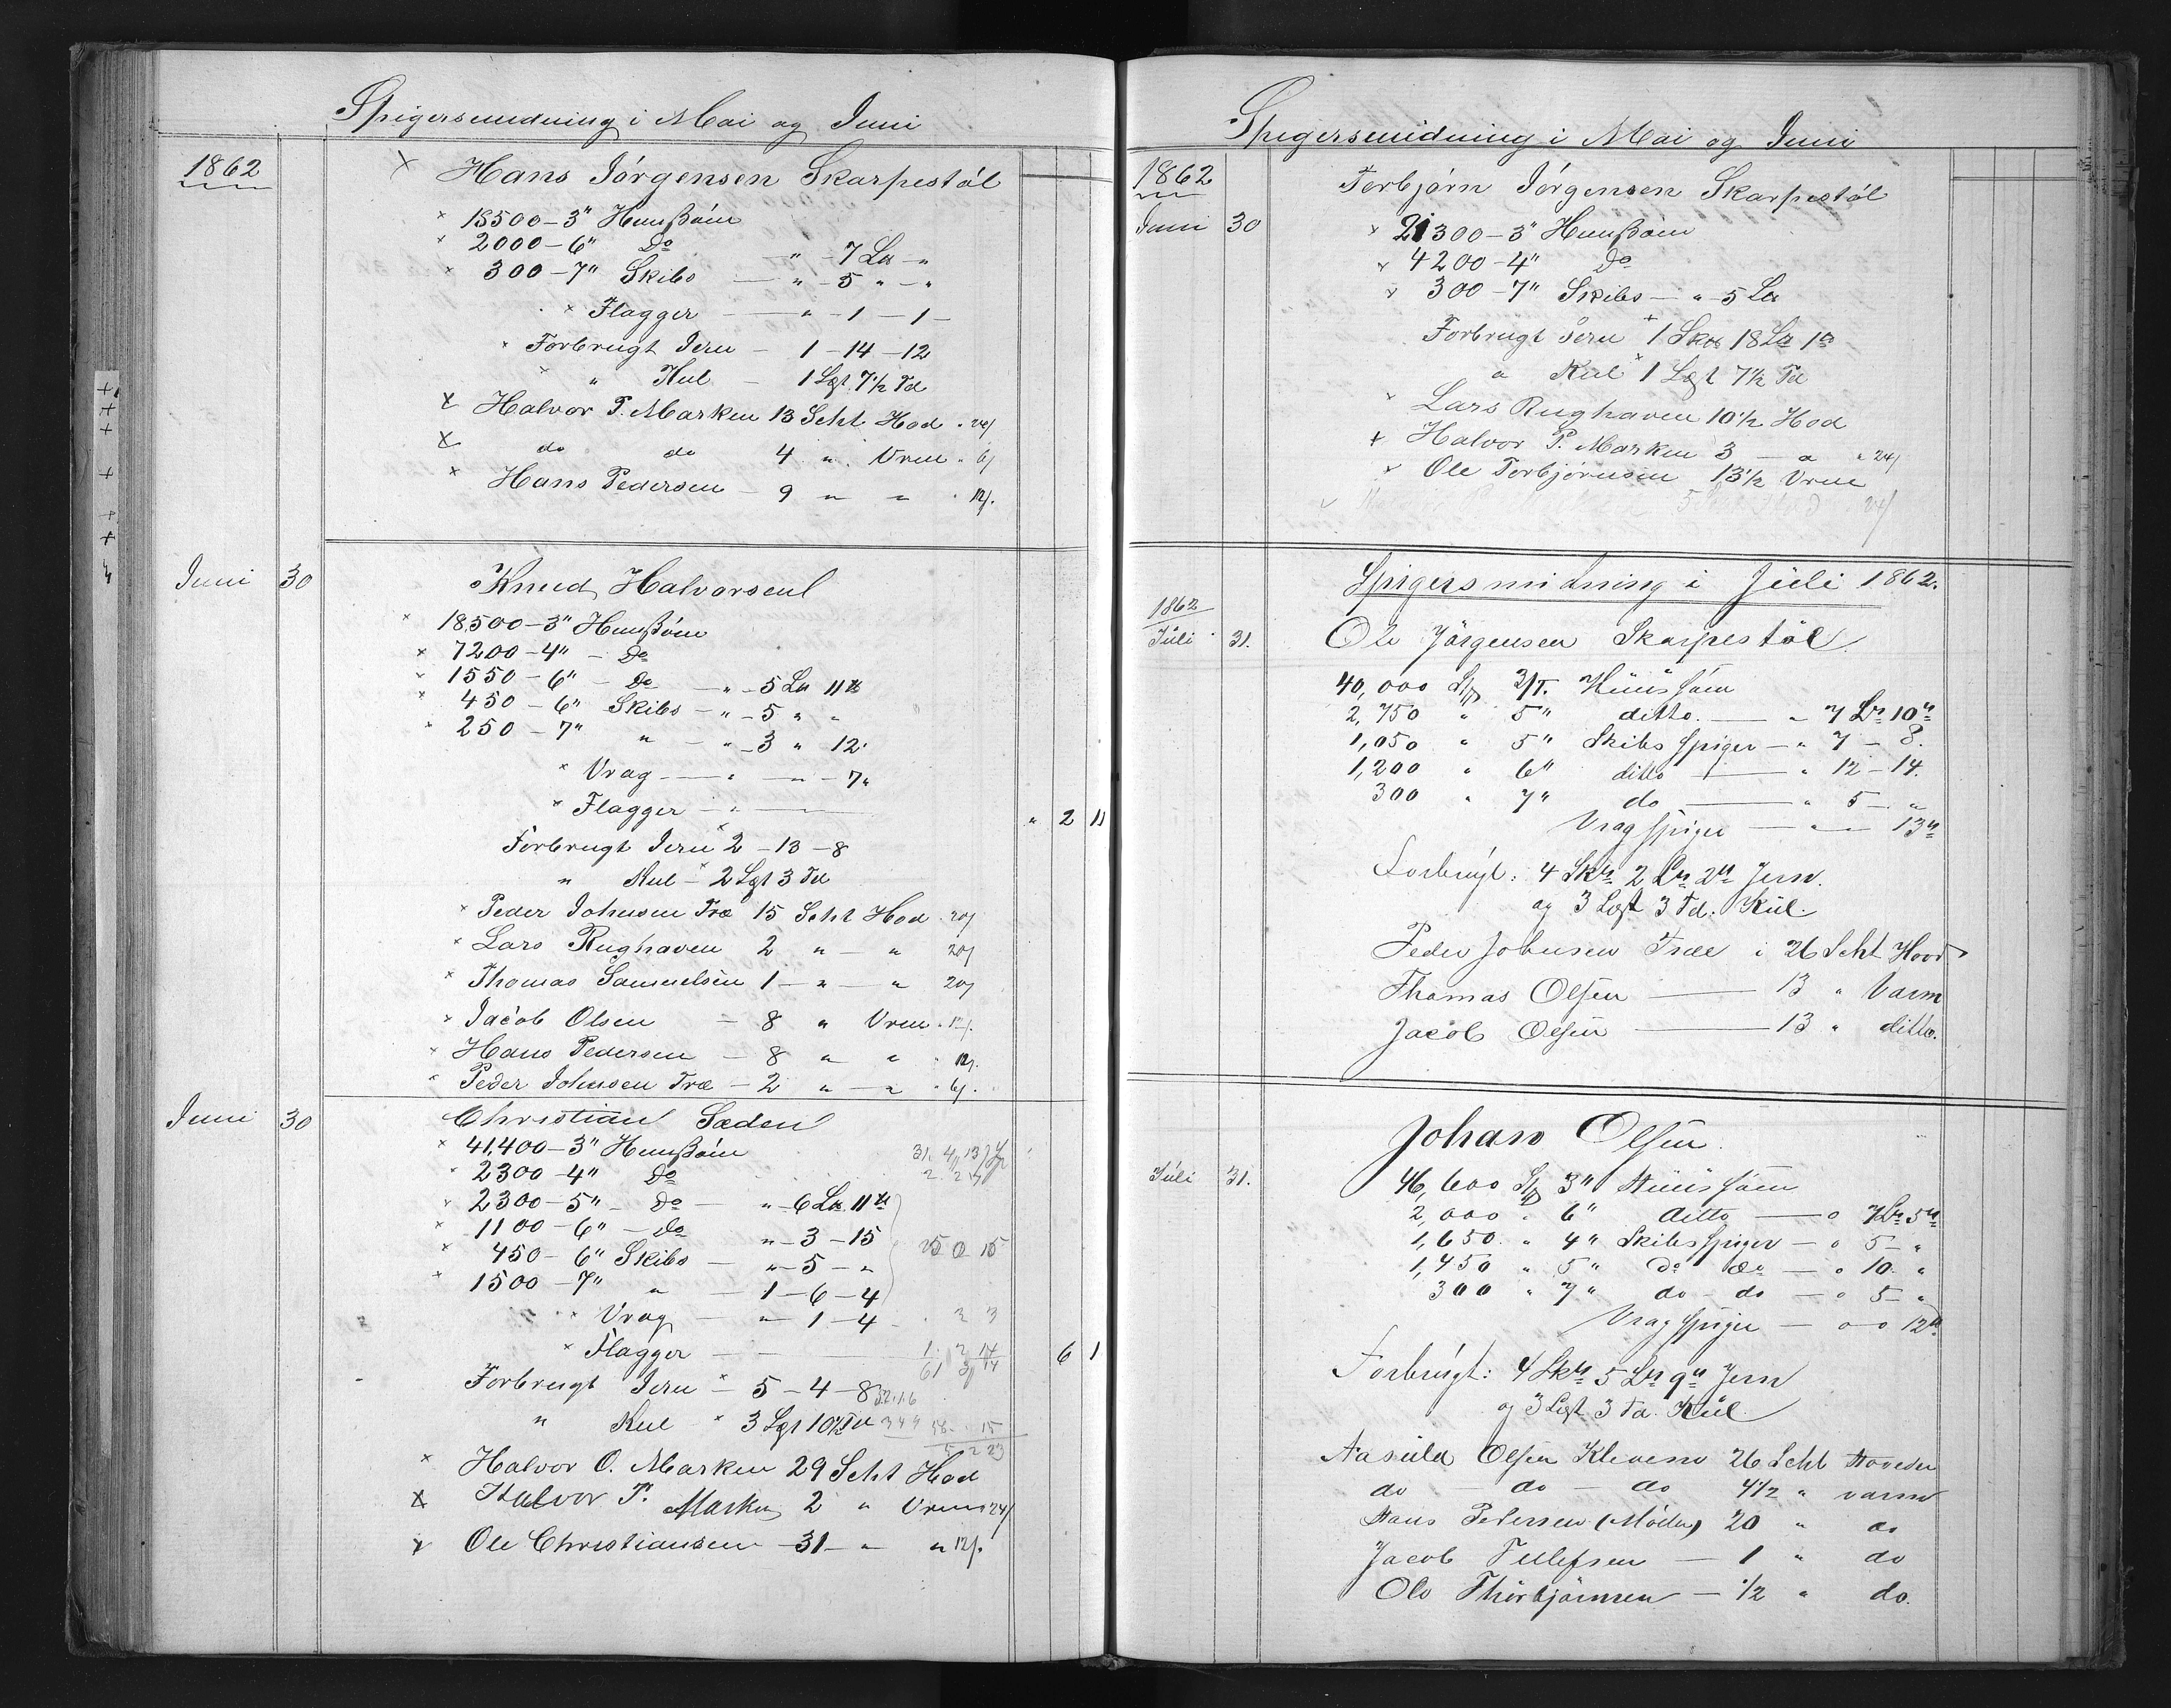 Spigersmidning i Mai og Juni
1862
x Hans Jörgensen Skarpestöl
x 18500 - 3" Hunßöm
x 2000 - 6" Do " - 7 L℔ - "
x 300 - 7" Skibs — " - 5 " - "
x Flagger — " - 1 - 1 -
x Forbrugt Jern - 1 - 14 - 12
x " Kul - 1 Lgt 7½ Td
x Halvor P. Marken 13 Scht Hod " 24/
x do do 4 " Vrm " 6/
x Hans Pedersen - 9 " " " 12/.
Juni 30 Knud Halvorsen
x 18,500 - 3" Hunßöm
x 7200 - 4" - Do
x 1550 - 6" - Do - " - 5 L℔ 11℔
x 450 - 6" Skibs - " - 5 " "
x 250 - 7" " - " - 3 " 12
x Vrag — " — " - 7"
x Flagger - " — " 2 11
Forbrugt Jern x 2 - 13 - 8
" Kul - x 2 Lgt 3 Td
x Peder Johnsen Træ 15 Scht Hod " 20/
x Lars Rughaven 2 " — " 20/
x Thomas Samuelsen 1 - " — " 20/
x Jacob Olsen - 8 " Vrm " 12/.
x Hans Pedersen - 8 " " " 12/.
x Peder Johnsen Træ - 2 " — " " 6/.
Juni 30 Christian Sæden
x 41,400 - 3" Hunßöm
x 2300 - 4" Do
x 2300 - 5" - Do - " - 6 L℔ 11℔
x 1100 - 6" - do " - 3 - 15
x 450 - 6" Skibs - " - 5 - " 25 0 15
x 1500 - 7" " - 1 - 6 - 4
x Vrag - " - 1 - 4 2 3
x Flagger — 1. 2 14 6 1
Forbrugt Jern x - 5 - 4 - 8
" Kul x 3 Lgt 10½ Td
x Halvor O. Marken 29 Scht Hod
x Halvor P. Marken 2 " Vrm 24/
x Ole Christiansen - 31 - " " 12/.
Spigersmidning i Mai og Juni
1862 Torbjörn Jörgensen Skarpestöl
Juni 30 x 21300 - 3" Hunßöm
x 4200 - 4" Do
x 300 - 7" Skibs - " - 5 L℔
Forbrugt Jern x 1 Sk℔ 18 L℔ 1℔
" Kul x 1 Lgt 7½ Td
x Lars Rughaven 10½ Hod
x Halvor P. Marken 3 — " " 24/
x Ole Torbjörnsen 13½ Vrm
Spigersmidning i Juli 1862.
1862
Juli 31. Ole Jörgensen Skarpestöl
40,000 St 3/T. Hüüssöm
2,750 " 5" ditto. — " 7 L℔ 10℔
1,050 " 5" Skibs spiger — " 7 - 8.
1,200 " 6" ditto — " 12 - 14.
300 " 7" do — " 5 - "
Vragspiger — " — 13℔
Forbrugt: 4 Sk℔ 2 L℔ 2℔ Jern.
og 3 Legt 3 Td. Kül.
Peder Johnsen Træe i 26 Scht Hoved
Thomas Olsen — 13 " Varm
Jacob Olsen — 13 " ditto.
Johan Olsen.
Juli 31. 46,600 St 3" Hüüssöm
2,000 " 6" ditto — " 7 L℔ 5℔
1,650. " 4" Skibsspiger — " 5 - "
1,450 " 5" do do — " 10. "
300 " 7" do - do — " 5 - "
Vragspiger — " — " 12℔
Forbrugt: 4 Sk℔ 5 L℔ 9℔ Jern
og 3 Legt 3 Td. Kül.
Aasuld Olsen Kleven 26 Scht Hoveder
do - do - do 4½ " varm
Hans Pedersen (Möden) 20 " do
Jacob Tellefsen — 1 " do
Ole Thorbjörnsen — ½ " do.